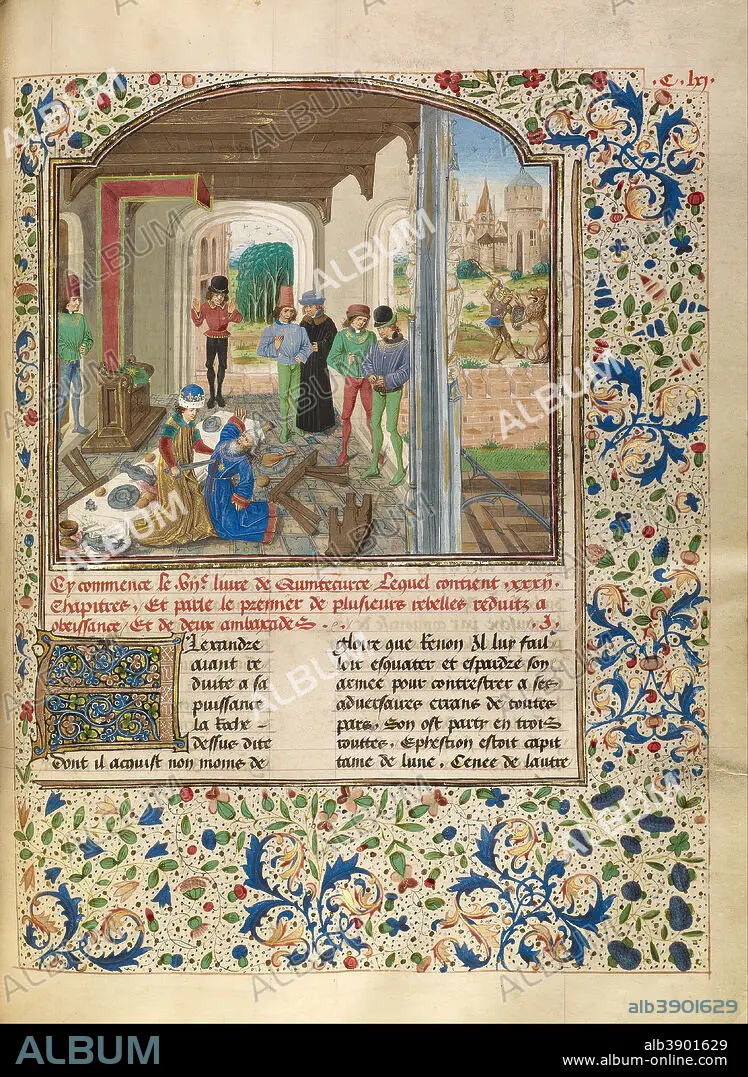 .C. lxj.
Cy commence le .viije. liure de Quintecurce Lequel contient .xxxij.
Chapitres, Et parle le premier de plusieurs rebelles reduitz a
obeissance, Et de deux ambaxades .j.
Alexandre
aiant re
duite a sa
puissance
la Roche
dessus dite
dont il acquist non moins de
gloire que Renon Il luy fail
loir esquater et espardre son
armee pour contrestrer a ses
aduersaires errans de toutes
pars, Son ost party en trois
routtes, Ephestion estoit capi
taine de lune, Cenee de lautre
ALBUM
alb3901629
ALBUM
alb3901629
www.album-online.com